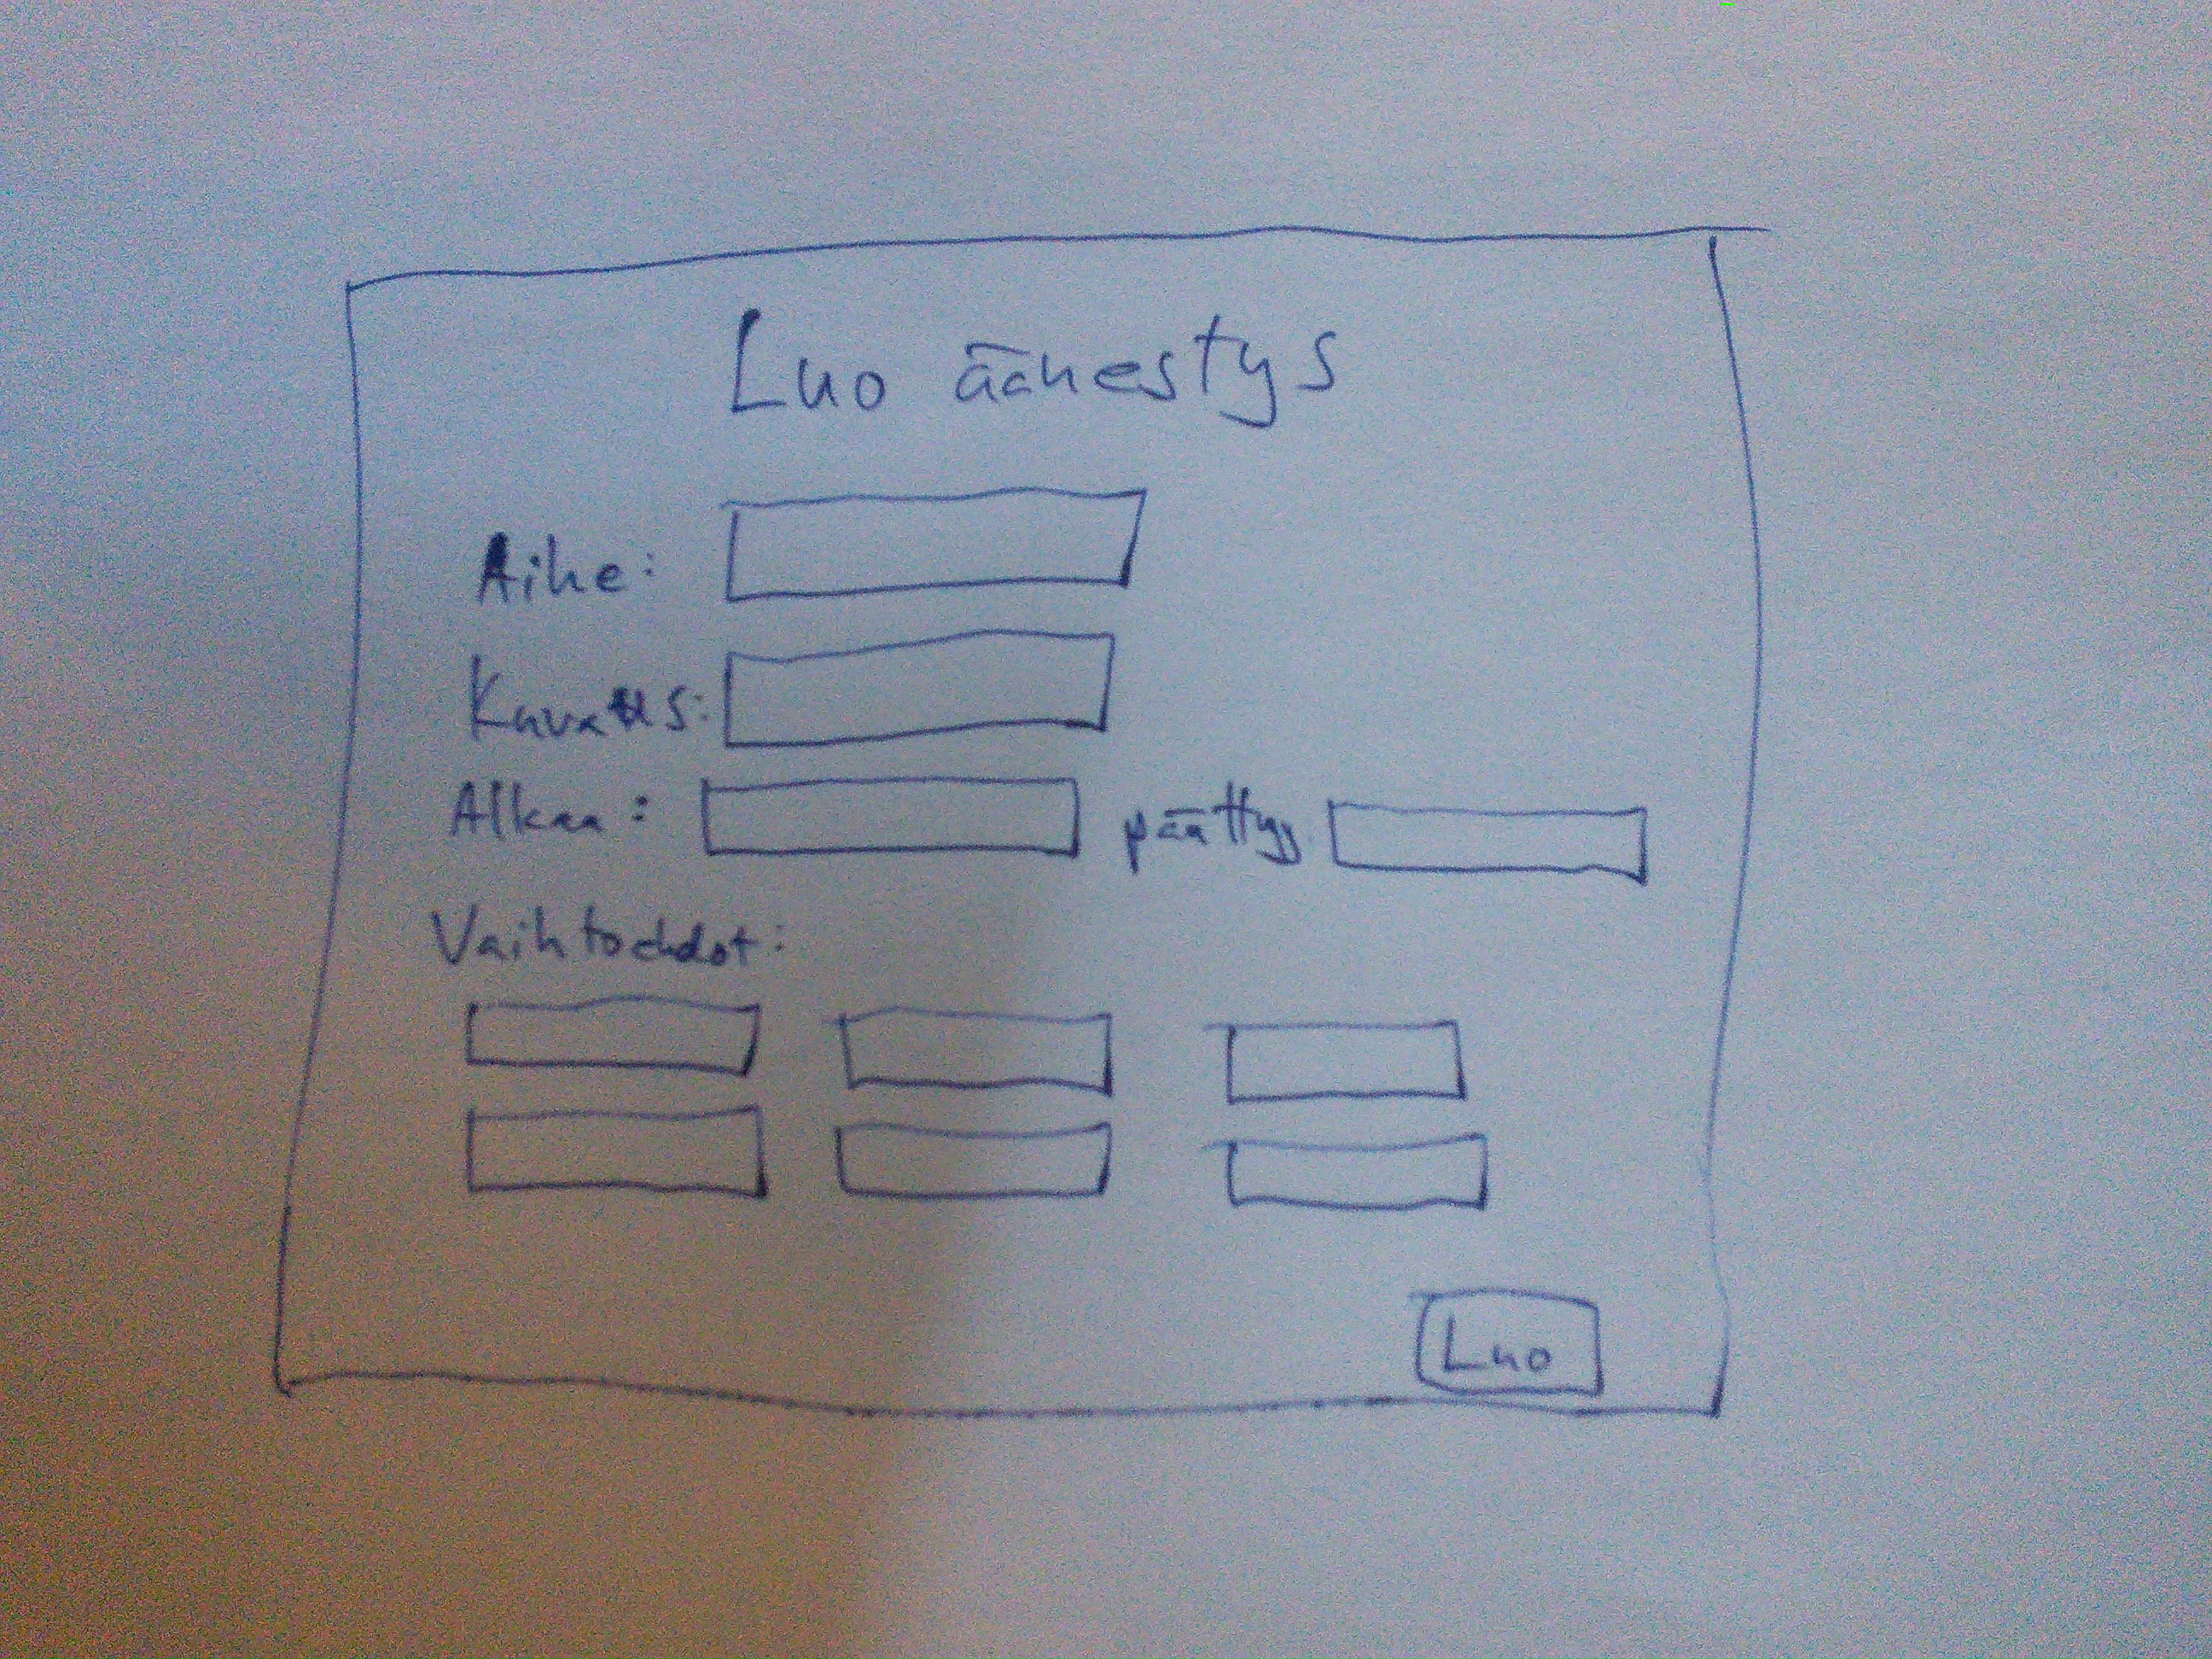 Luo äänestys
Aihe:
Kuvaus:
Alkaa: päättyy
Vaihtoehdot:
Luo